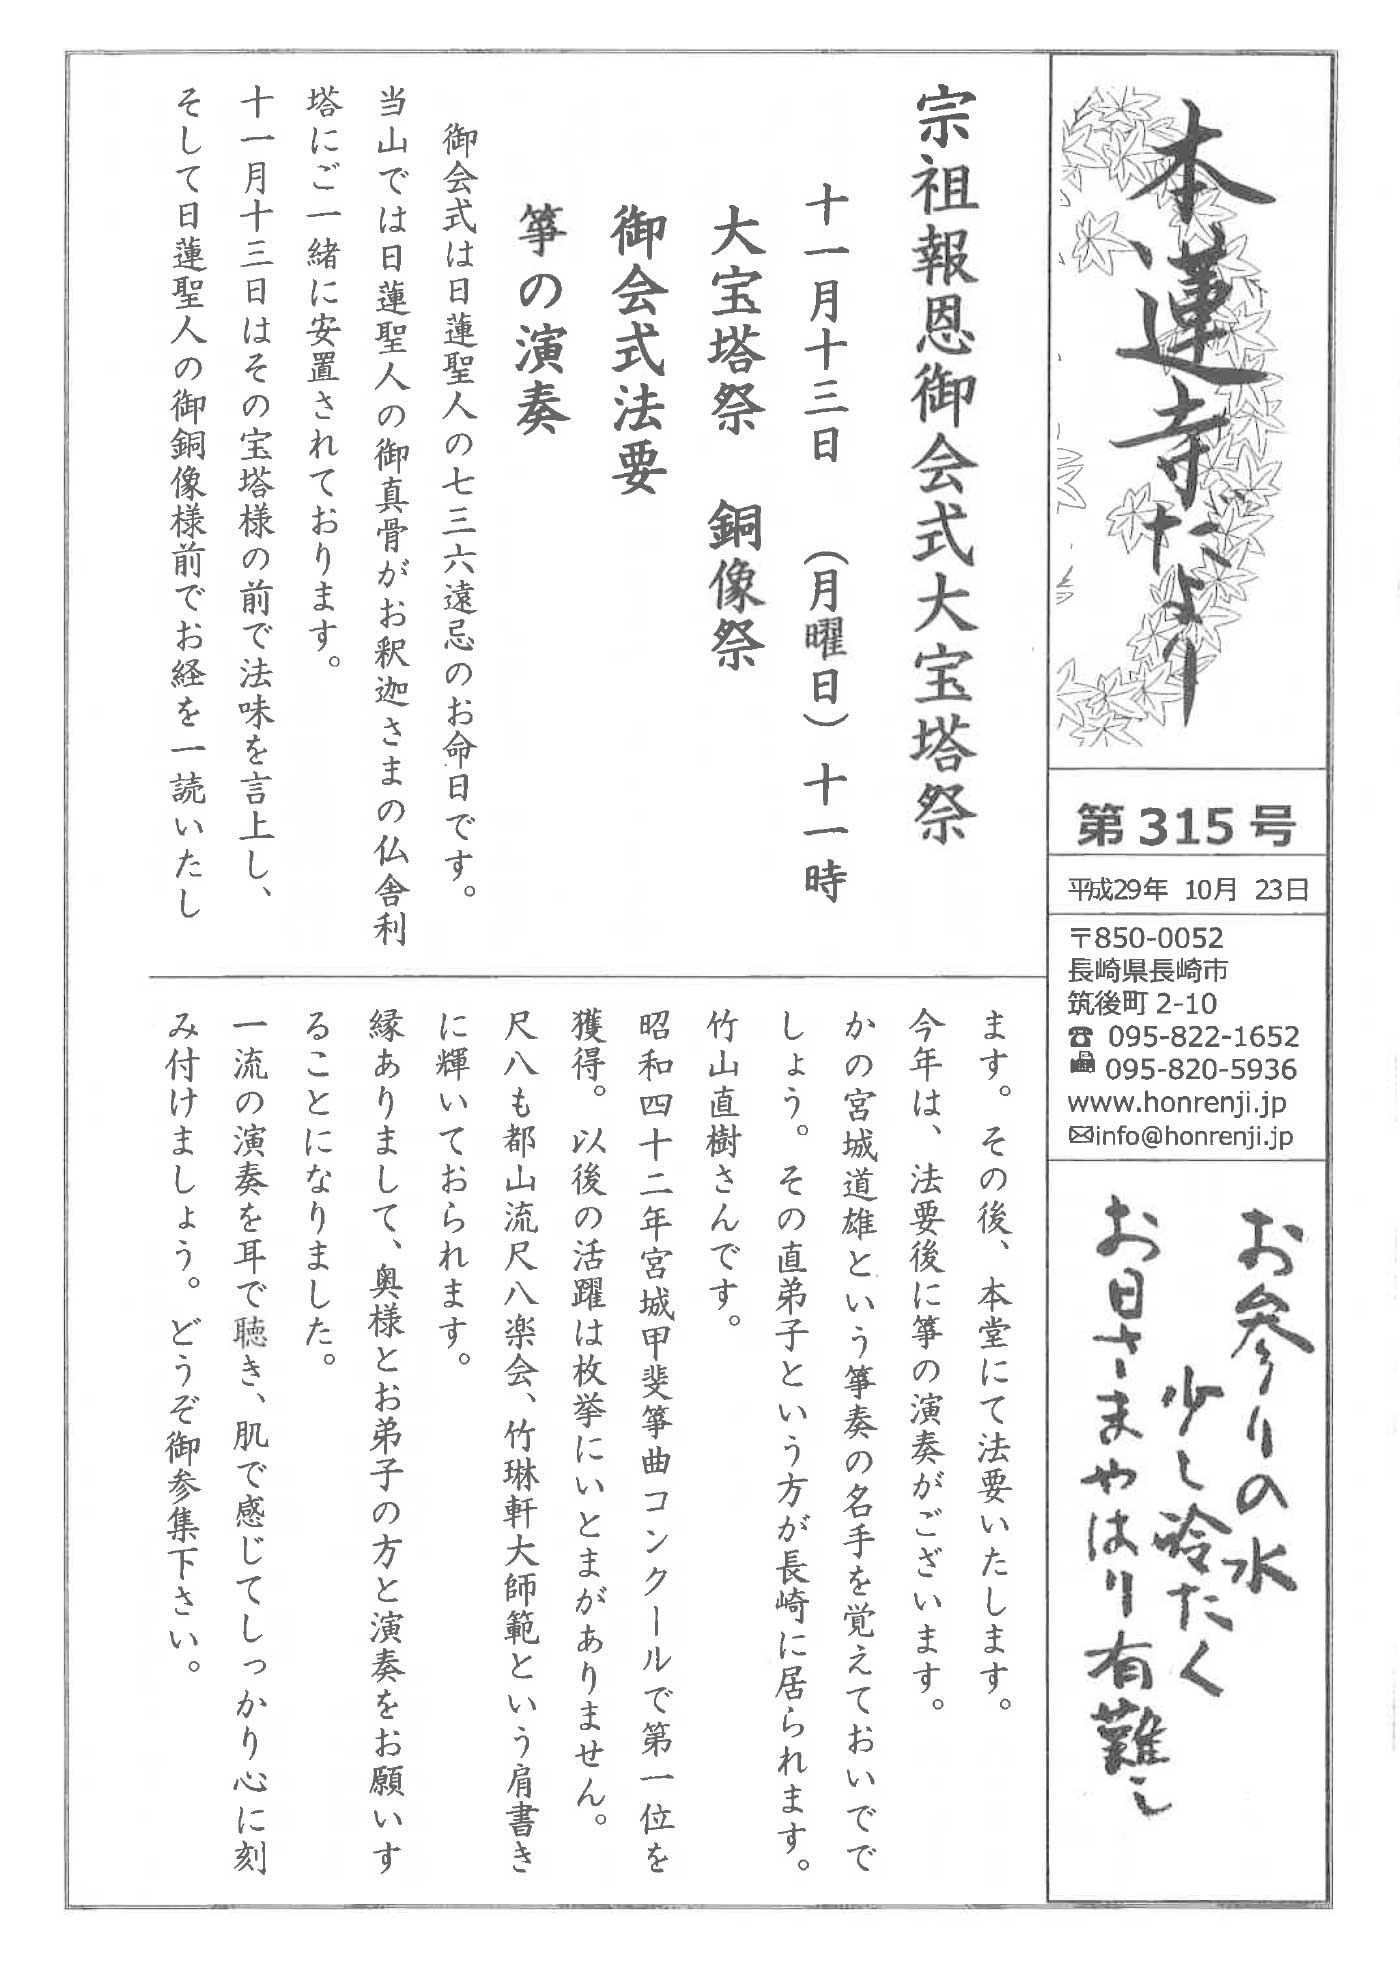 本蓮寺だより
第315号
平成29年 10月 23日
〒850-0052
長崎県長崎市
筑後町 2-10
☎ 095-822-1652
095-820-5936
www.honrenji.jp
✉info@honrenji.jp
お参りの水
少し冷たく
お日さまやはり有難し
宗祖報恩御会式大宝塔祭
十一月十三日 (月曜日) 十一時
大宝塔祭 銅像祭
御会式法要
箏の演奏
御会式は日蓮聖人の七三六遠忌のお命日です。
当山では日蓮聖人の御真骨がお釈迦さまの仏舎利
塔にご一緒に安置されております。
十一月十三日はその宝塔様の前で法味を言上し、
そして日蓮聖人の御銅像様前でお経を一読いたし
ます。その後、本堂にて法要いたします。
今年は、法要後に箏の演奏がございます。
かの宮城道雄という箏奏の名手を覚えておいでで
しょう。その直弟子という方が長崎に居られます。
竹山直樹さんです。
昭和四十二年宮城甲斐箏曲コンクールで第一位を
獲得。以後の活躍は枚挙にいとまがありません。
尺八も都山流尺八楽会、竹琳軒大師範という肩書き
に輝いておられます。
縁ありまして、奥様とお弟子の方と演奏をお願いす
ることになりました。
一流の演奏を耳で聴き、肌で感じてしっかり心に刻
み付けましょう。どうぞ御参集下さい。